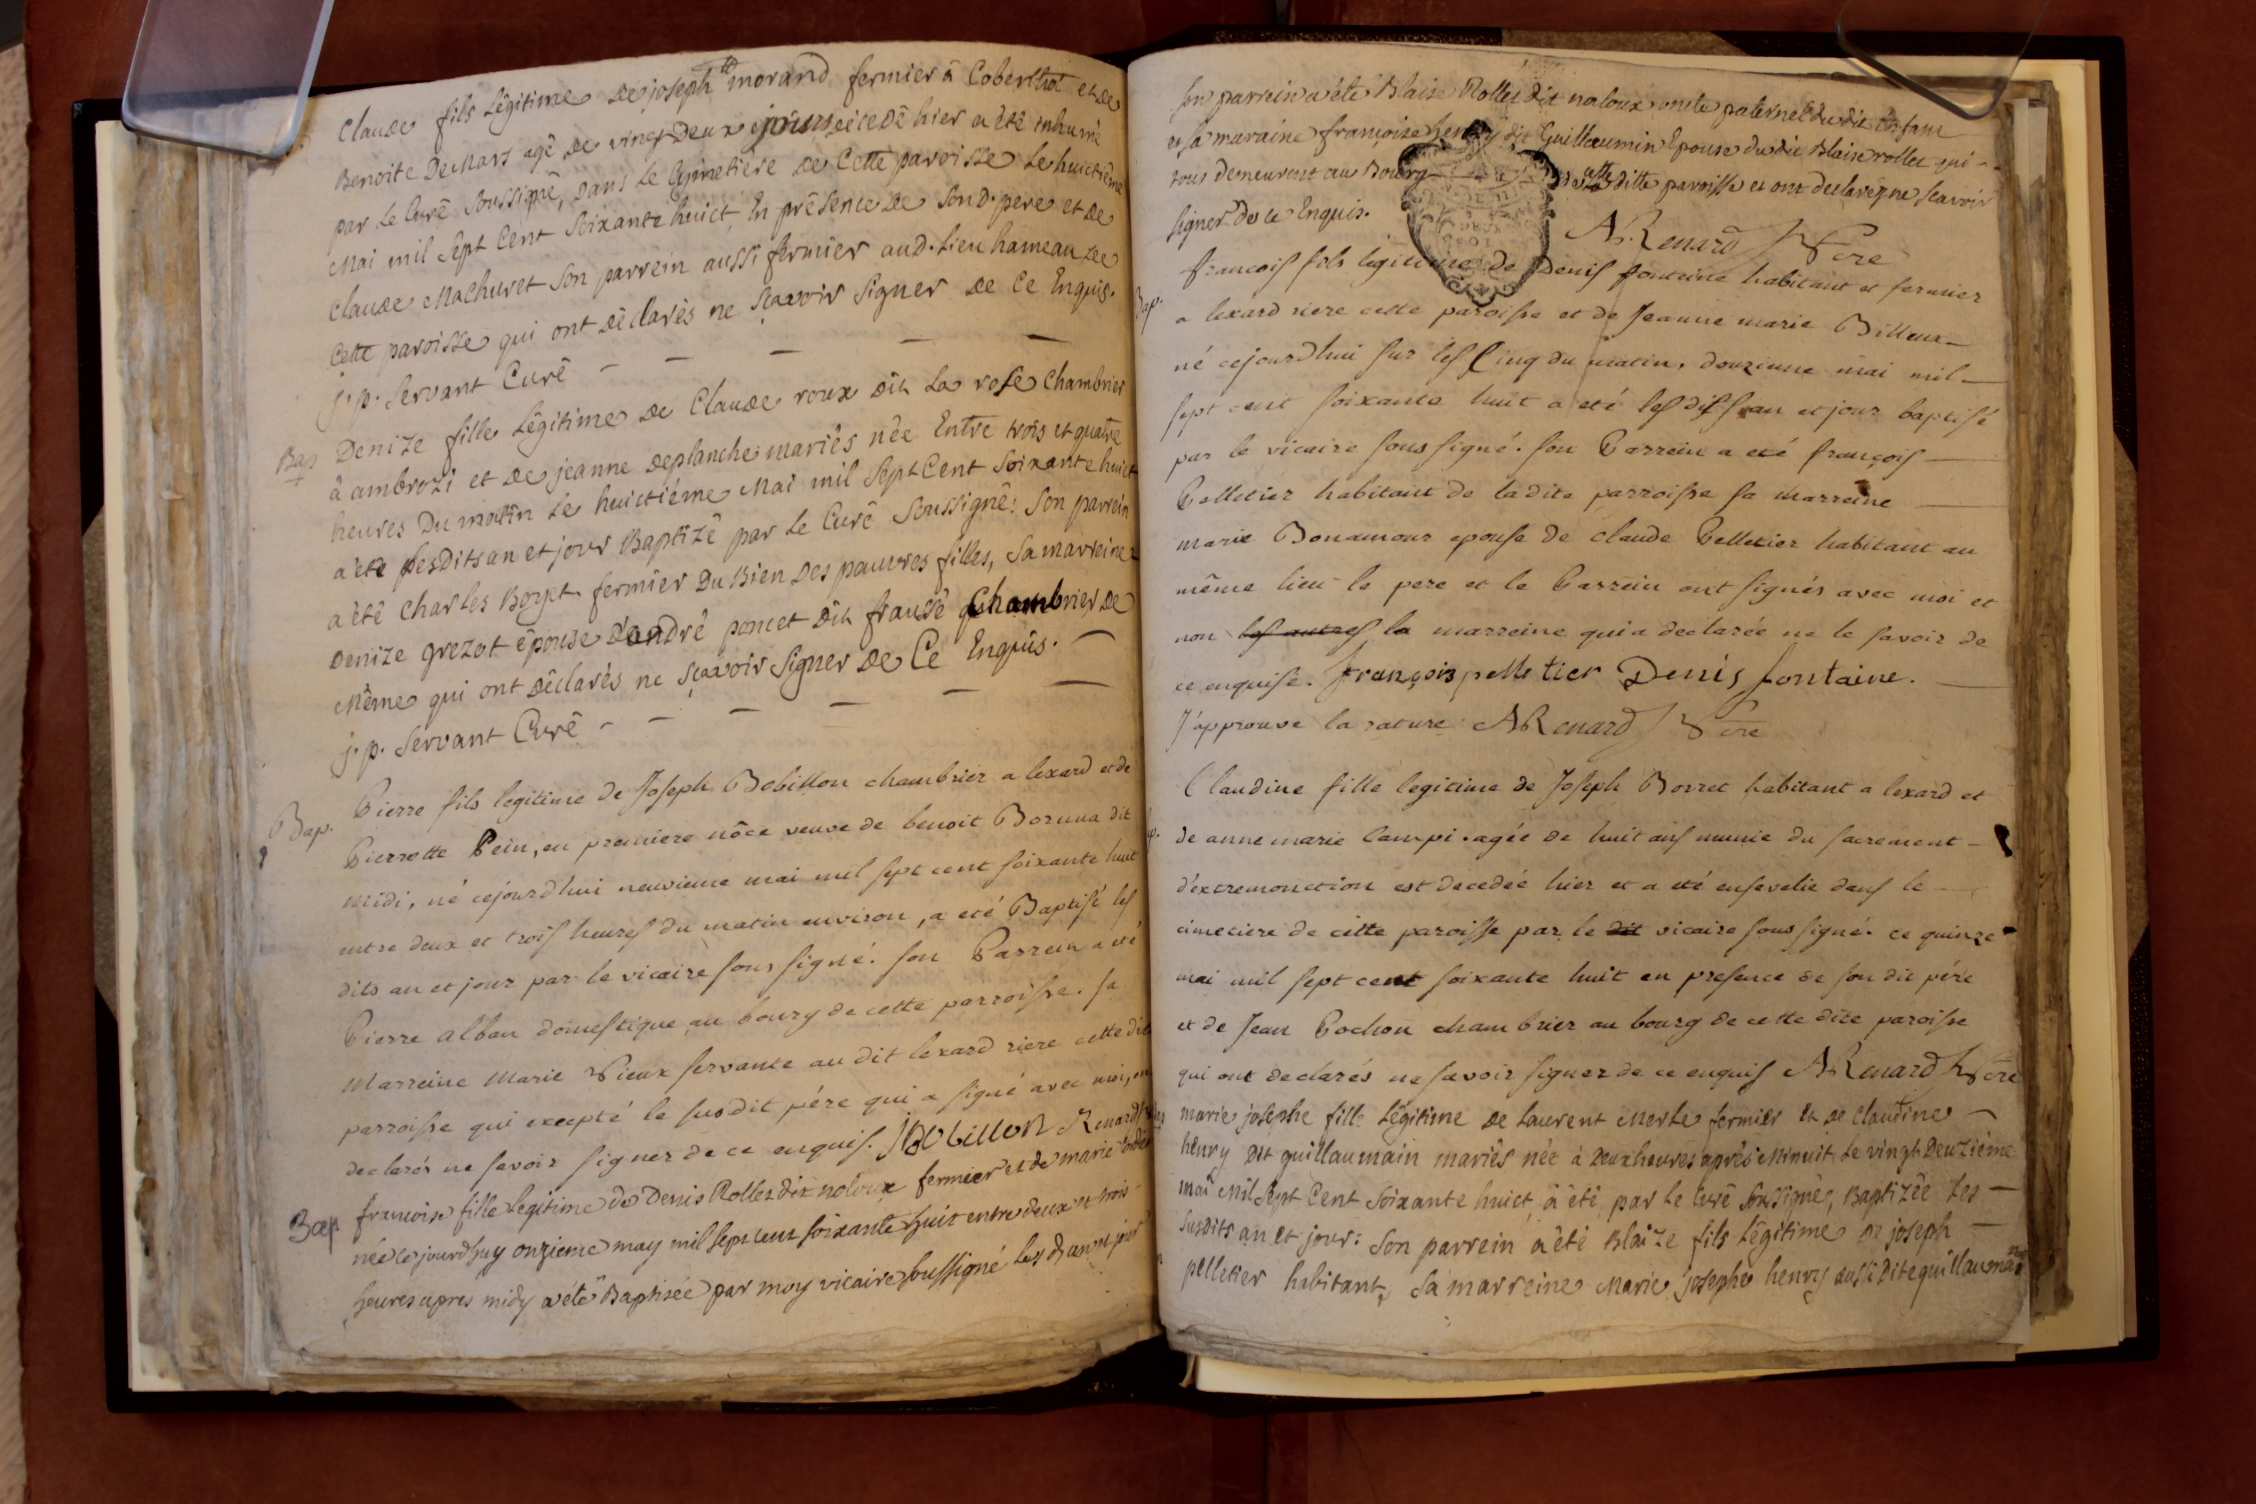 Claude fils Légitime de joseph morand fermier à Coberthot et de
Benoite DeMars agé de vingt deux jours décedé hier a été inhumé
par Le Curé Soussigné, dans Le Cymetiére de Cette paroisse Le huictiéme
Mai mil Sept Cent Soixante huict, En présence de Sond. pere et de
Claude Machuret Son parrein aussi fermier aud. Lieu hameau de
Cette paroisse qui ont déclarés ne Sçavoir Signer de Ce Enquis.
j. p. Servant Curé
Bap Denize fille Légitime de Claude roux dit La rose Chambrier
à ambrozi et de jeanne deplanche mariés née Entre trois et quatre
heures Du matin Le huictiéme Mai mil Sept Cent Soixante huict
a été Lesdits an et jour Baptizé par Le Curé Soussigné: Son parrein
a été Charles fermier Du Bien Des pauvres filles, Sa marreine
Denize grezot épouse d'andré poncet dit fraudé Chambrier de
Même qui ont déclarés ne Sçavoir Signer de Ce Enquis.
j. p. Servant Curé
Bap. Pierre fils legitime de Joseph Bobillon chambrier a lexard et de
Pierrette Pein, en premiere nôce veuve de benoit Boruna dit
midi, né cejourd'hui neuvieme mai mil sept cent soixante huit
entre deux et trois heures du matin environ, a eté Baptisé les
dits an et jour par le vicaire sous signé. son Parrein a été
Pierre alban domestique au bourg de cette parroisse. sa
Marreine Marie Vieux servante au dit lexard riere cette dite
parroisse qui excepté le susdit pére qui a signé avec moi, ont
declarés ne savoir signer de ce enquis. JBObillon Renard
Bap francoise fille legitime de Denis Rollet dit naloux fermier et de marie
née ce jourdhuy onzieme may mil sept cent soixante huit entre deux et trois
heures apres midy a été Baptisée par moy vicaire soussigné les d. an et jour
son parrein a été Blaise Rollet dit naloux oncle paternel du dit Enfant
et sa maraine françoise henry dit Guillaumin Epouse du dit Blaise rollet qui
tous demeurent au Bourg de cette ditte paroisse et ont declaré ne scavoir
signer de ce Enquis.
ARenard Vcre
Bap. francois fils legitime de Denis fontaine habitant et fermier
a lexard riere cette paroisse et de Jeanne marie Billoux
né cejourdhui sur les Cinq du matin, douzieme mai mil
sept cent soixante huit a eté lesdits an et jour baptisé
par le vicaire sous signé. son Parrein a eté françois
Pelletier habitant de ladite parroisse sa marreine
marie Bonamour epouse de claude Pelletier habitant au
même lieu le pere et le Parrein ont signés avec moi et
non les autres la marreine qui a declarée ne le savoir de
ce enquise. françois pelletier Denis fontaine.
J'approuve la rature ARenard Vcre
Claudine fille legitime de Joseph Borret habitant a lexard et
de anne marie Campi. agée de huit ans munie du sacrement
d'extremonction est decedeé hier et a eté ensevelie dans le
cimetiere de cette paroisse par le dit vicaire sous signé. ce quinze
mai mil sept cent soixante huit en presence de son dit pére
et de Jean Pochon chambrier au bourg de cette dite paroisse
qui ont declarés ne savoir signer de ce enquis ARenard Vcre
marie josephe fille Légitime de Laurent Merle fermier et de Claudine
henry Dit guillaumain mariés née à Deux heures après Minuit Le vingt Deuziéme
mai Mil Sept Cent Soixante huict, a été par Le Curé Soussigné, Baptizée Les
Susdits an et jour: Son parrein a été Blaize fils Légitime de joseph
pelletier habitant, Sa marreine Marie josephe henry aussi Dite guillaumain